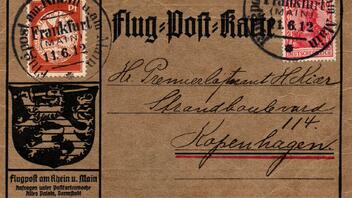 Flugpost am Rhein u. am Main
Frankfurt
(MAIN)
11.6.12
Flug-Post-Karte
Frankfurt
(MAIN)
11.6.12
Hr Premierløjtnant
Strandboulevard
114.
Kopenhagen.
Flugpost am Rhein u. Main
Anfragen unter Postkartenwoche
Altes Palais, Darmstadt